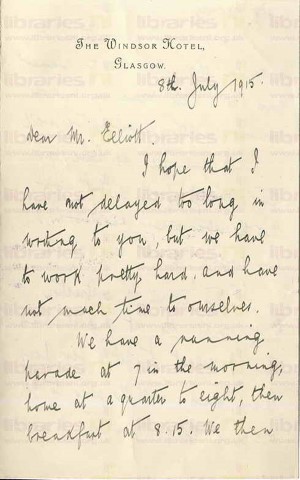 The Windsor Hotel,
Glasgow.
8th July 1915.
Dear Mr. Elliott.
I hope that I
have not delayed too long in
writing to you, but we have
to work pretty hard, and have
not much time to ourselves.
We have a running
parade at 7 in the morning,
home at a quarter to eight, then
breakfast at 8.15. We then